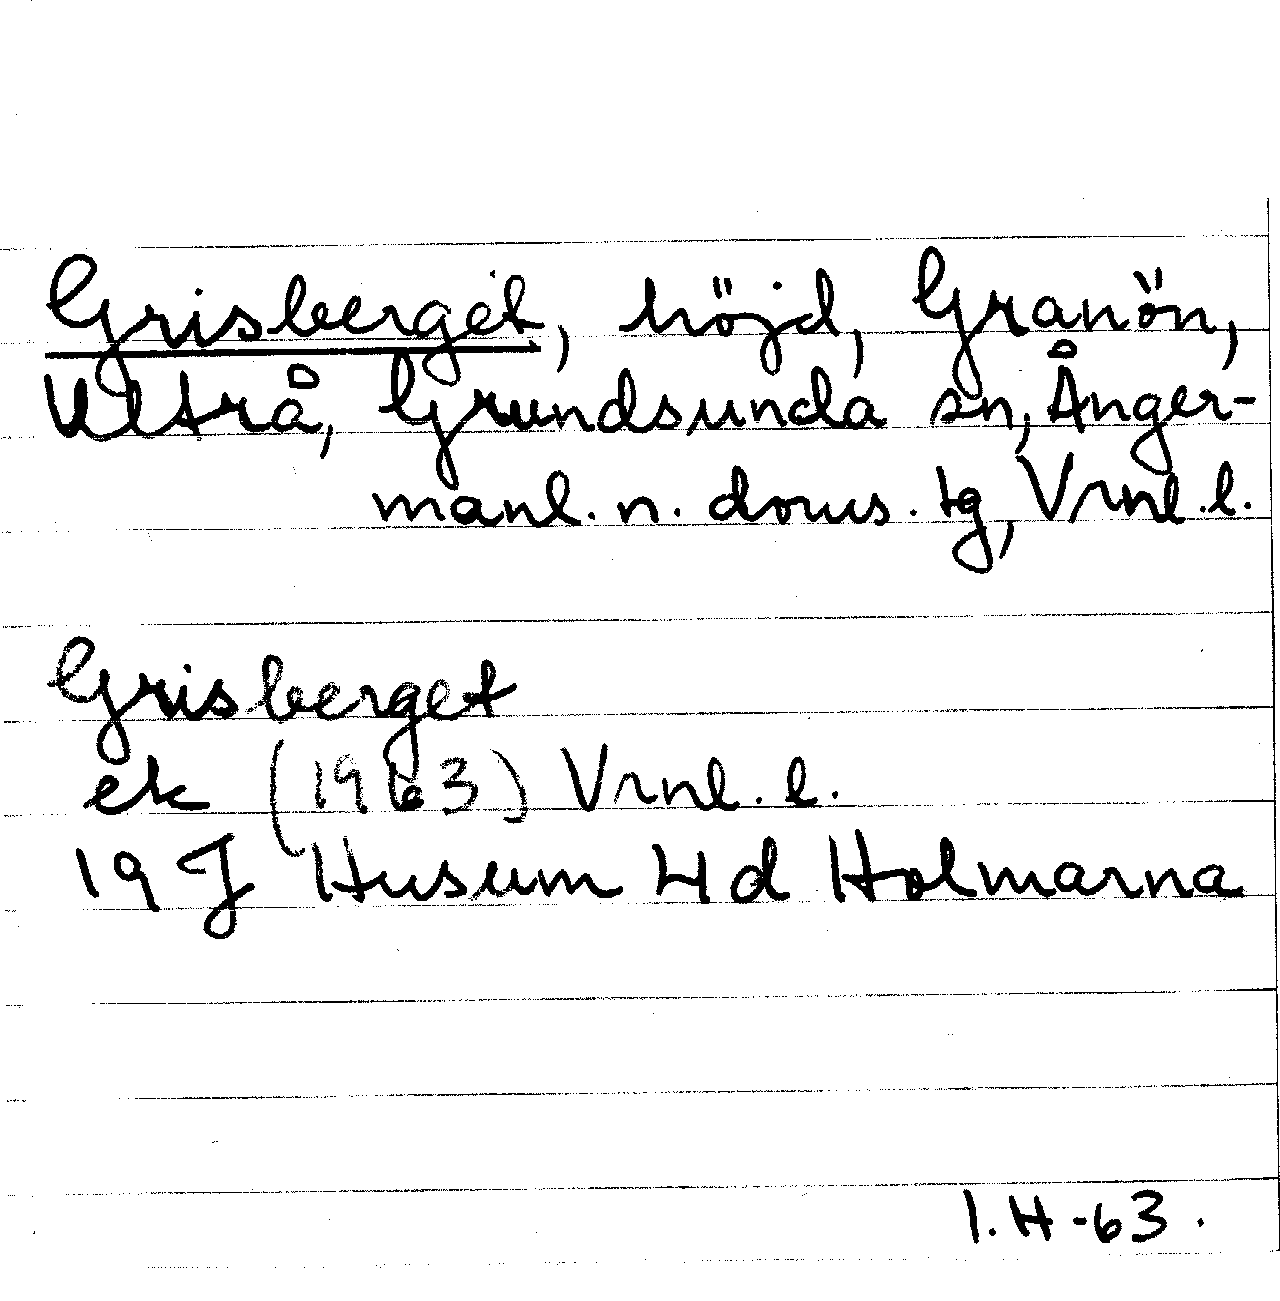 Grisberget, höjd, Granön,
Ultrå, Grundsunda sn, Ånger-
manl. n. doms. tg, Vrnl. l.
Grisberget
ek (1963) Vrnl. l.
19 J Husum 4d Holmarna
I. H -63.